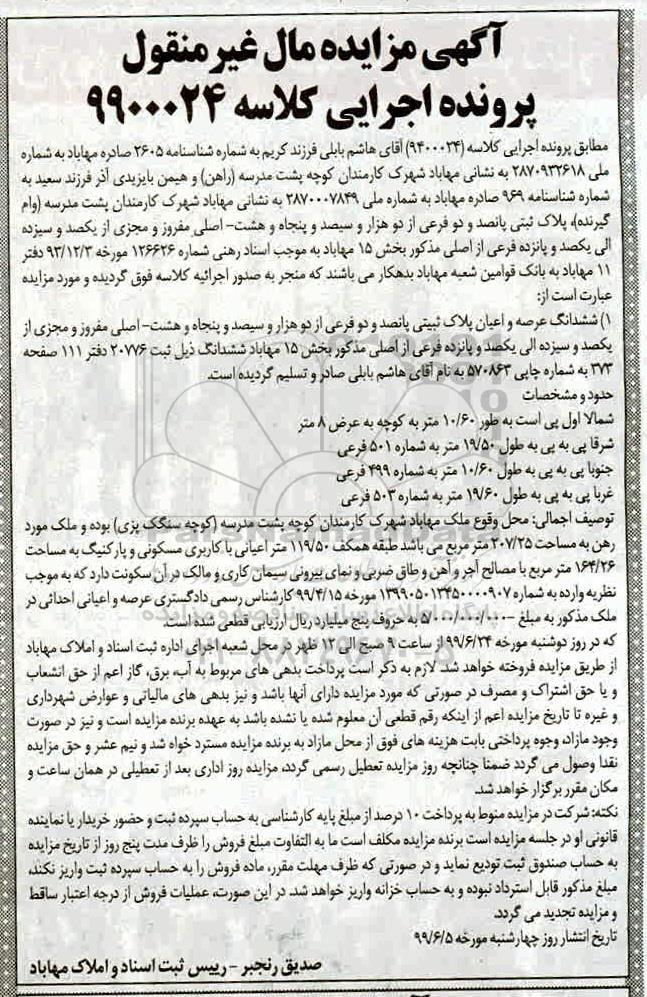 آگهی مزایده مال غیر منقول
پرونده اجرایی کلاسه ۹۹۰۰۰۲۴
مطابق پرونده اجرایی کلاسه (۹۴۰۰۰۲۴) آقای هاشم بابلی فرزند کریم به شماره شناسنامه ۲۶۰۵ صادره مهاباد به شماره
ملی ۲۸۷۰۹۳۲۶۱۸ به نشانی مهاباد شهرک کارمندان کوچه پشت مدرسه (راهن) و هیمن بایزیدی آذر فرزند سعید به
شماره شناسنامه ۹۶۹ صادره مهاباد به شماره ملی ۲۸۷۰۰۰۷۸۴۹ به نشانی مهاباد شهرک کارمندان پشت مدرسه (وام
گیرنده)، پلاک ثبتی پانصد و دو فرعی از دو هزار و سیصد و پنجاه و هشت- اصلی مفروز و مجزی از یکصد و سیزده
الی یکصد و پانزده فرعی از اصلی مذکور بخش ۱۵ مهاباد به موجب اسناد رهنی شماره ۱۲۶۶۲۶ مورخه ۹۳/۱۲/۳ دفتر
۱۱ مهاباد به بانک قوامین شعبه مهاباد بدهکار می باشند که منجر به صدور اجرائیه کلاسه فوق گردیده و مورد مزایده
عبارت است از:
۱) ششدانگ عرصه و اعیان پلاک ثبیتی پانصد و دو فرعی از دو هزار و سیصد و پنجاه و هشت- اصلی مفروز و مجزی از
یکصد و سیزده الی یکصد و پانزده فرعی از اصلی مذکور بخش ۱۵ مهاباد ششدانگ ذیل ثبت ۲۰۷۷۶ دفتر ۱۱۱ صفحه
۳۷۳ به شماره چاپی ۵۷۰۸۶۳ به نام آقای هاشم بابلی صادر و تسلیم گردیده است.
حدود و مشخصات
شمالا اول پی است به طور ۱۰/۶۰ متر به کوچه به عرض ۸ متر
شرقا پی به پی به طول ۱۹/۵۰ متر به شماره ۵۰۱ فرعی
جنوبا پی به پی به طول ۱۰/۶۰ متر به شماره ۴۹۹ فرعی
غربا پی به پی به طول ۱۹/۶۰ متر به شماره ۵۰۳ فرعی
توصیف اجمالی: محل وقوع ملک مهاباد شهرک کارمندان کوچه پشت مدرسه (کوچه سنگک پزی) بوده و ملک مورد
رهن به مساحت ۲۰۷/۲۵ متر مربع می باشد طبقه همکف ۱۱۹/۵۰ متر اعیانی با کاربری مسکونی و پارکنیگ به مساحت
۱۶۴/۲۶ متر مربع با مصالح آجر و آهن و طاق ضربی و نمای بیرونی سیمان کاری و مالک در آن سکونت دارد که به موجب
نظریه وارده به شماره ۱۳۹۹۰۵۰۱۳۴۵۰۰۰۰۹۰۷ مورخه ۹۹/۴/۱۵ کارشناس رسمی دادگستری عرصه و اعیانی احداثی در
ملک مذکور به مبلغ -۵/۰۰۰/۰۰۰/۰۰۰ به حروف پنج میلیارد ریال ارزیابی قطعی شده است.
که در روز دوشنبه مورخه ۹۹/۶/۲۴ از ساعت ۹ صبح الی ۱۲ ظهر در محل شعبه اجرای اداره ثبت اسناد و املاک مهاباد
از طریق مزایده فروخته خواهد شد. لازم به ذکر است پرداخت بدهی های مربوط به آب، برق، گاز اعم از حق انشعاب
و یا حق اشتراک و مصرف در صورتی که مورد مزایده دارای آنها باشد و نیز بدهی های مالیاتی و عوارض شهرداری
و غیره تا تاریخ مزایده اعم از اینکه رقم قطعی آن معلوم شده یا نشده باشد به عهده برنده مزایده است و نیز در صورت
وجود مازاد، وجوه پرداختی بابت هزینه های فوق از محل مازاد به برنده مزایده مسترد خواه شد و نیم عشر و حق مزایده
نقدا وصول می گردد ضمنا چنانچه روز مزایده تعطیل رسمی گردد، مزایده روز اداری بعد از تعطیلی در همان ساعت و
مکان مقرر برگزار خواهد شد.
نکته: شرکت در مزایده منوط به پرداخت ۱۰ درصد از مبلغ پایه کارشناسی به حساب سپرده ثبت و حضور خریدار یا نماینده
قانونی او در جلسه مزایده است برنده مزایده مکلف است ما به التفاوت مبلغ فروش را ظرف مدت پنج روز از تاریخ مزایده
به حساب صندوق ثبت تودیع نماید و در صورتی که ظرف مهلت مقرر، ماده فروش را به حساب سپرده ثبت واریز نکند،
مبلغ مذکور قابل استرداد نبوده و به حساب خزانه واریز خواهد شد. در این صورت، عملیات فروش از درجه اعتبار ساقط
و مزایده تجدید می گردد.
تاریخ انتشار روز چهارشنبه مورخه ۹۹/۶/۵
صدیق رنجبر - رییس ثبت اسناد و املاک مهاباد